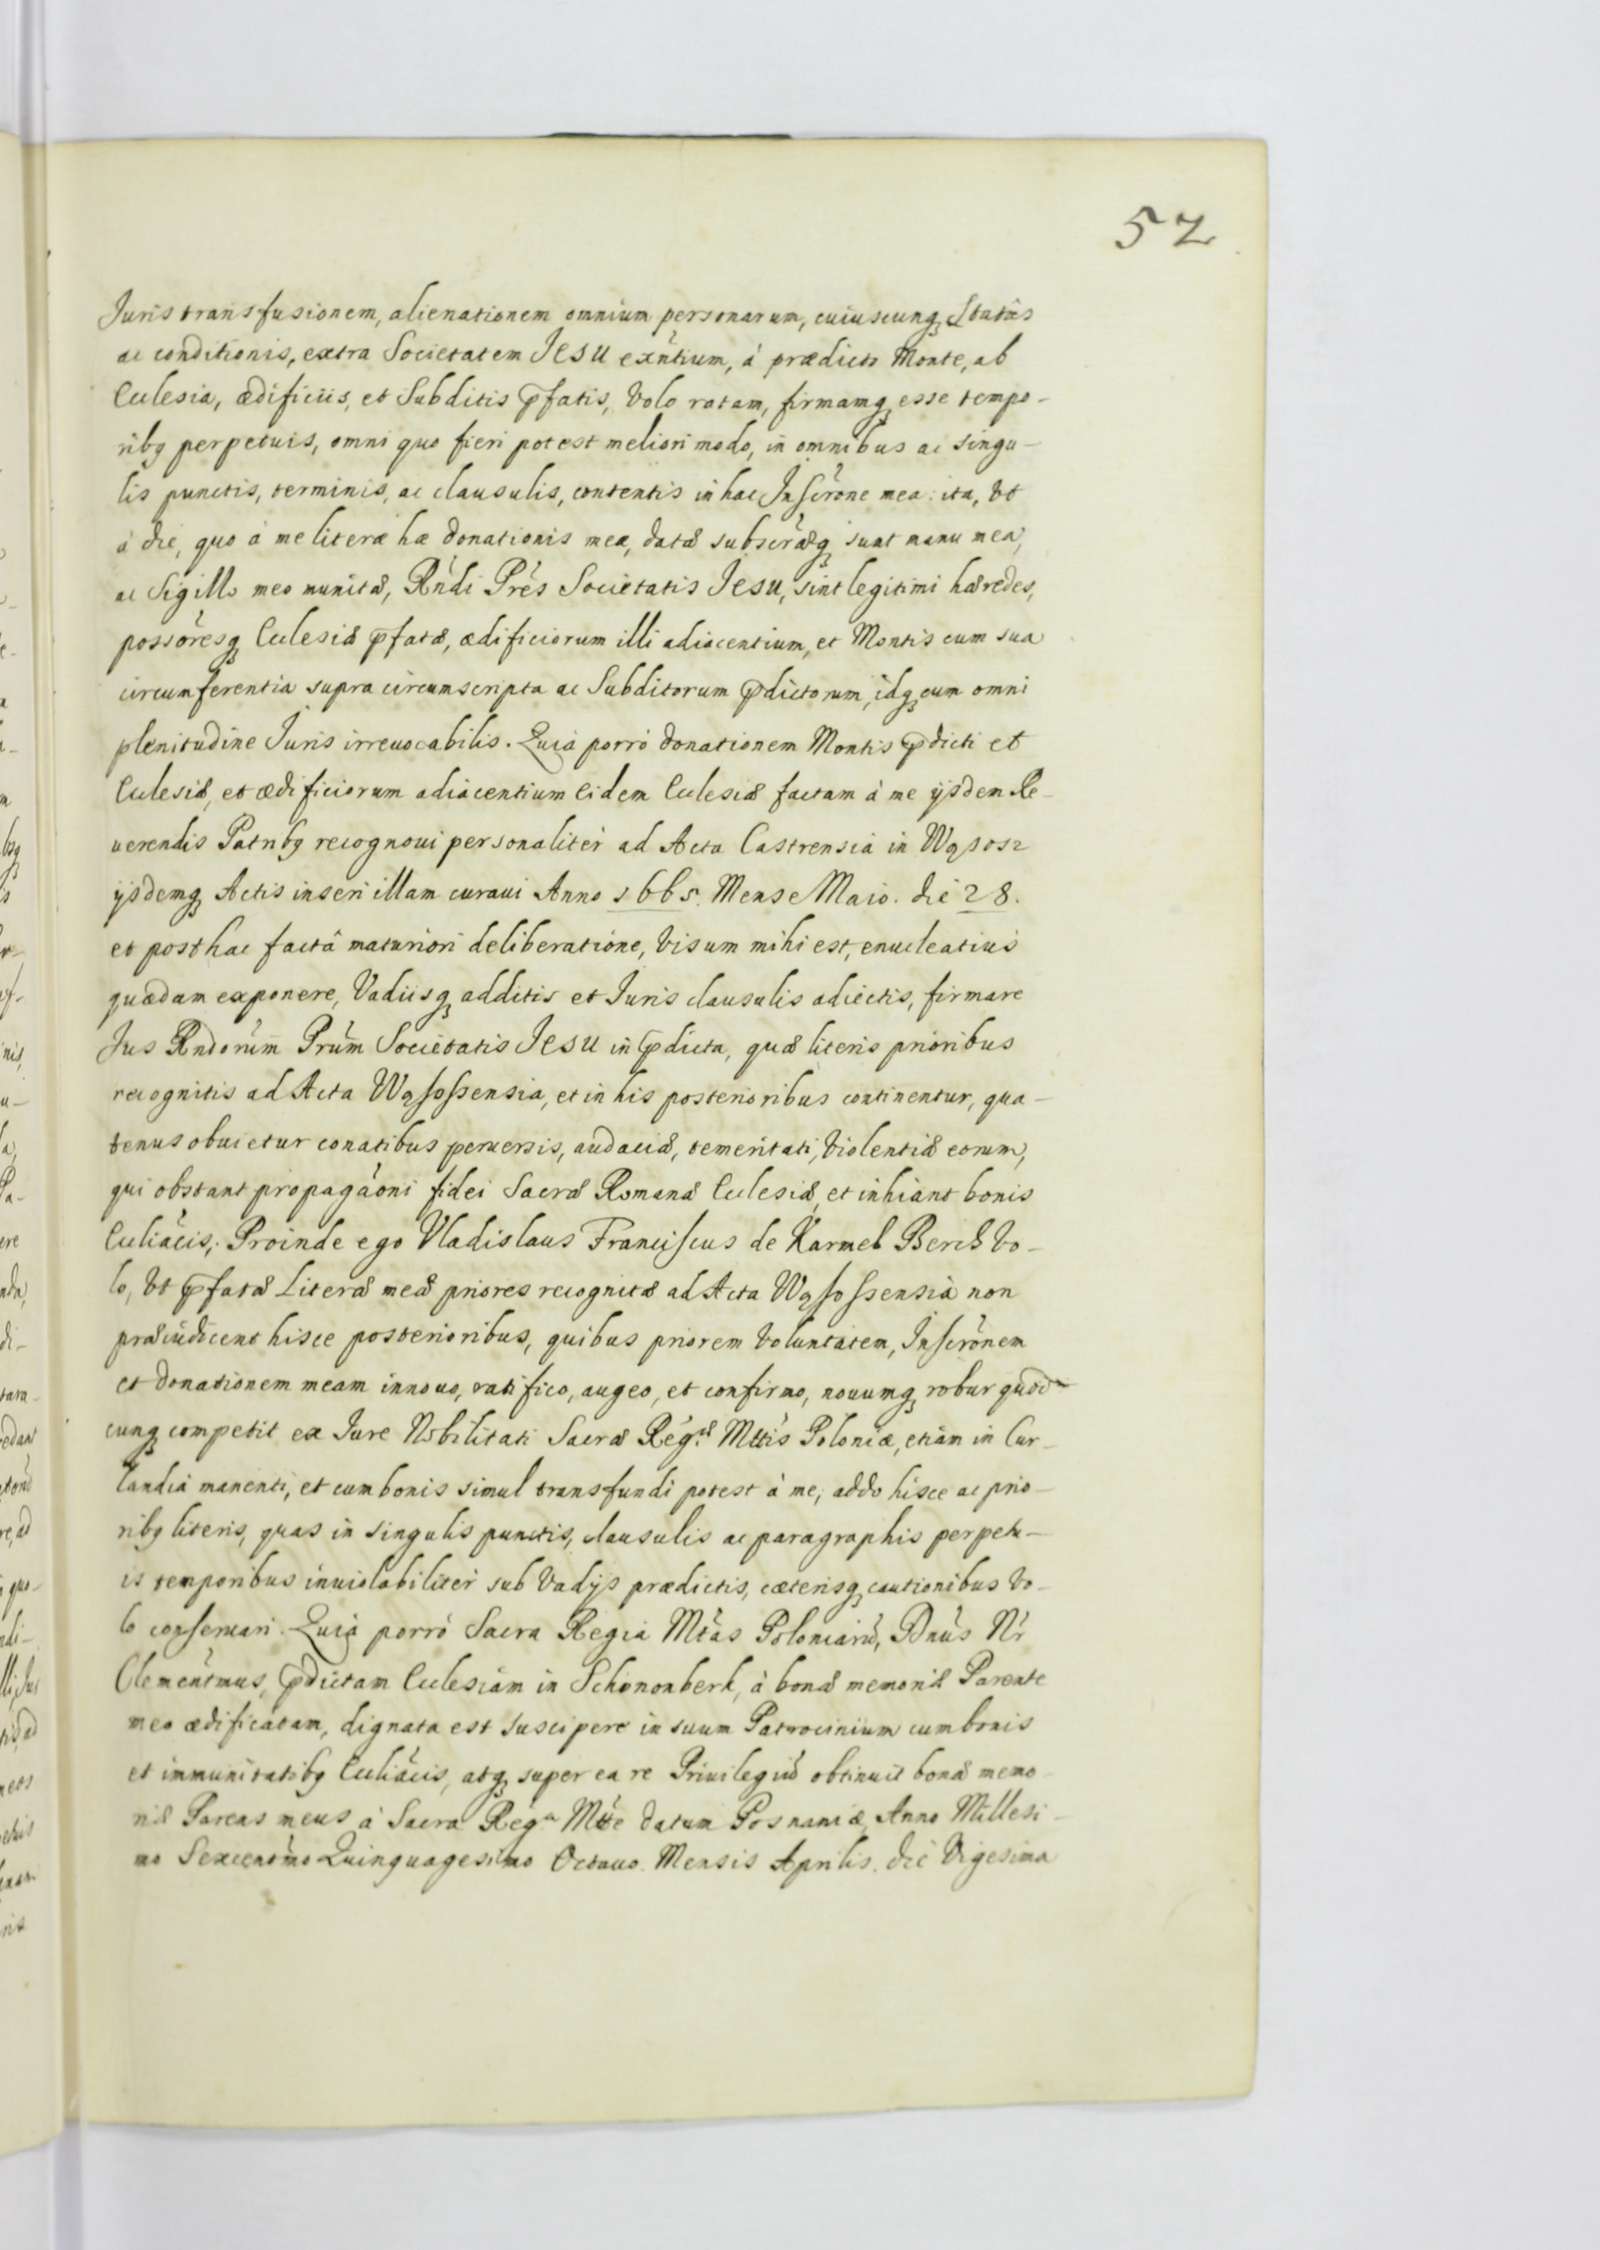 52
Juris transfusionem, alienationem omnium personarum, cuiuscunq Status
ac conditionis, extra Societatem Jesu exñtium, à prædicto Monte, ab
Eccłesia, ædificiis, et Subditis p̄fatis, Volo ratam, firmamq esse tempo-
ribq perpetuis, omni quo fieri potest meliori modo, in omnibus ac singu-
lis punctis, terminis, ac clausulis, contentis in hac Inscr̃one mea: ita, Vt
à die, quo à me literæ hæ donationis meæ, datæ subscr̃æq sunt manu mea,
ac Sigillo meo munitæ, Rñdi Prẽs Societatis Jesu, sint legitimi hæredes,
possõresq Ecclesiæ p̄fatæ, ædificiorum illi adiacentium, et Montis cum sua
circumferentia supra circumscripta ac Subditorum p̄dictorum, idq cum omni
plenitudine Juris irreuocabilis. Quia porrò donationem Montis p̄dicti et
Ecclesiæ, et ædificiorum adiacentium eidem Ecclesiæ factam à me ijsdem Re-
uerendis Patribq recognoui personaliter ad Acta Castrensia in Wąsosz
ijsdemq Actis inseri illam curaui Anno 1665. Mense Maio. die 28.
et posthac factâ maturiori deliberatione, Visum mihi est, enucleatius
quædam exponere, Vadiisq additis et Juris clausulis adiectis, firmare
Jus Rndorum̃ Prum̃ Societatis Jesu in p̄dicta, quæ literis prioribus
recognitis ad Acta Wąsossensia, et in his posterioribus continentur, qua-
tenus obuietur conatibus peruersis, audaciæ, temeritati, Violentiæ eorum,
qui obstant propagãoni fidei Sacræ Romanæ Ecclesiæ, et inhiant bonis
Eccliãcis, Proinde ego Vladislaus Franciscus de Karmel Berck Vo-
lo, Vt p̄fatæ Literæ meæ priores recognitæ ad Acta Wąsossensia non
præiudicent hisce posterioribus, quibus priorem Voluntatem, Inscr̃onem
et donationem meam innouo, ratifico, augeo, et confirmo, nouumq robur quod
cunq competit ex Jure Nobilitati Sacræ Regæ Mttis Poloniæ, etiam in Cur-
landia manenti, et cum bonis simul transfundi potest à me, addo hisce ac prio-
ribq literis, quas in singulis punctis, clausulis ac paragraphis perpetu-
is temporibus inuiolabiliter sub Vadijs prædictis, cæterisq cautionibus Vo-
lo conseruari. Quia porrò Sacra Regia Mtãs Poloniarũ, Dnũs Nr̃
Clementm̃us, p̄dictam Ecclesiam in Schononberk, à bonæ memoriæ Parente
meo ædificatam, dignata est suscipere in suum Patrocinium cum bonis
et immunitatibq Eccliãcis, atq super ea re Priuilegiũ obtinuit bonæ memo-
riæ Parens meus à Sacra Regᵃ Mtte datum Posnaniæ, Anno Millesi-
mo Sexcentõmo Quinquagesimo Octauo. Mensis Aprilis. die Vigesima